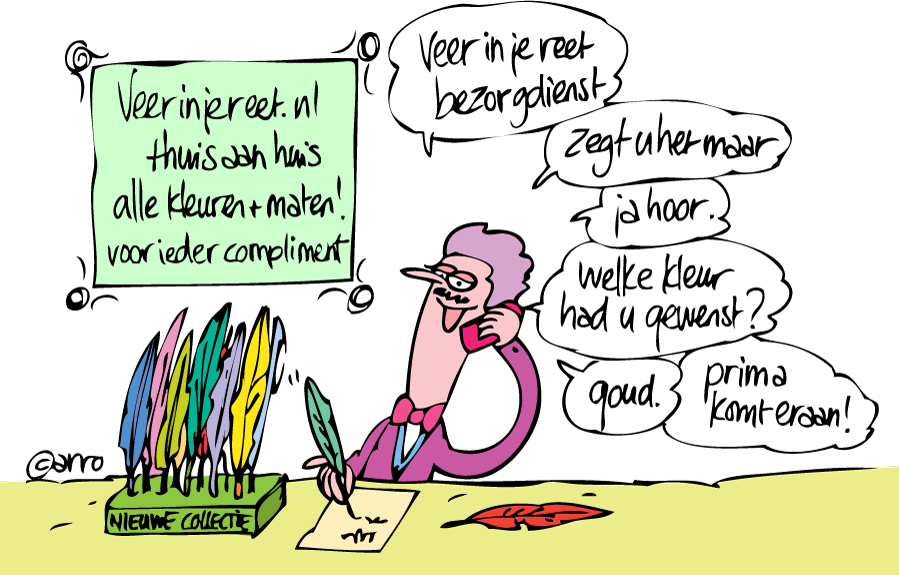 Veer in je reet. nl
thuis aan huis
alle kleuren + maten!
voor ieder compliment
Veer in je reet
bezorgdienst
zegt u het maar
ja hoor.
welke kleur
had u gewenst?
goud.
prima
komt eraan!
© arro
NIEUWE COLLECTIE